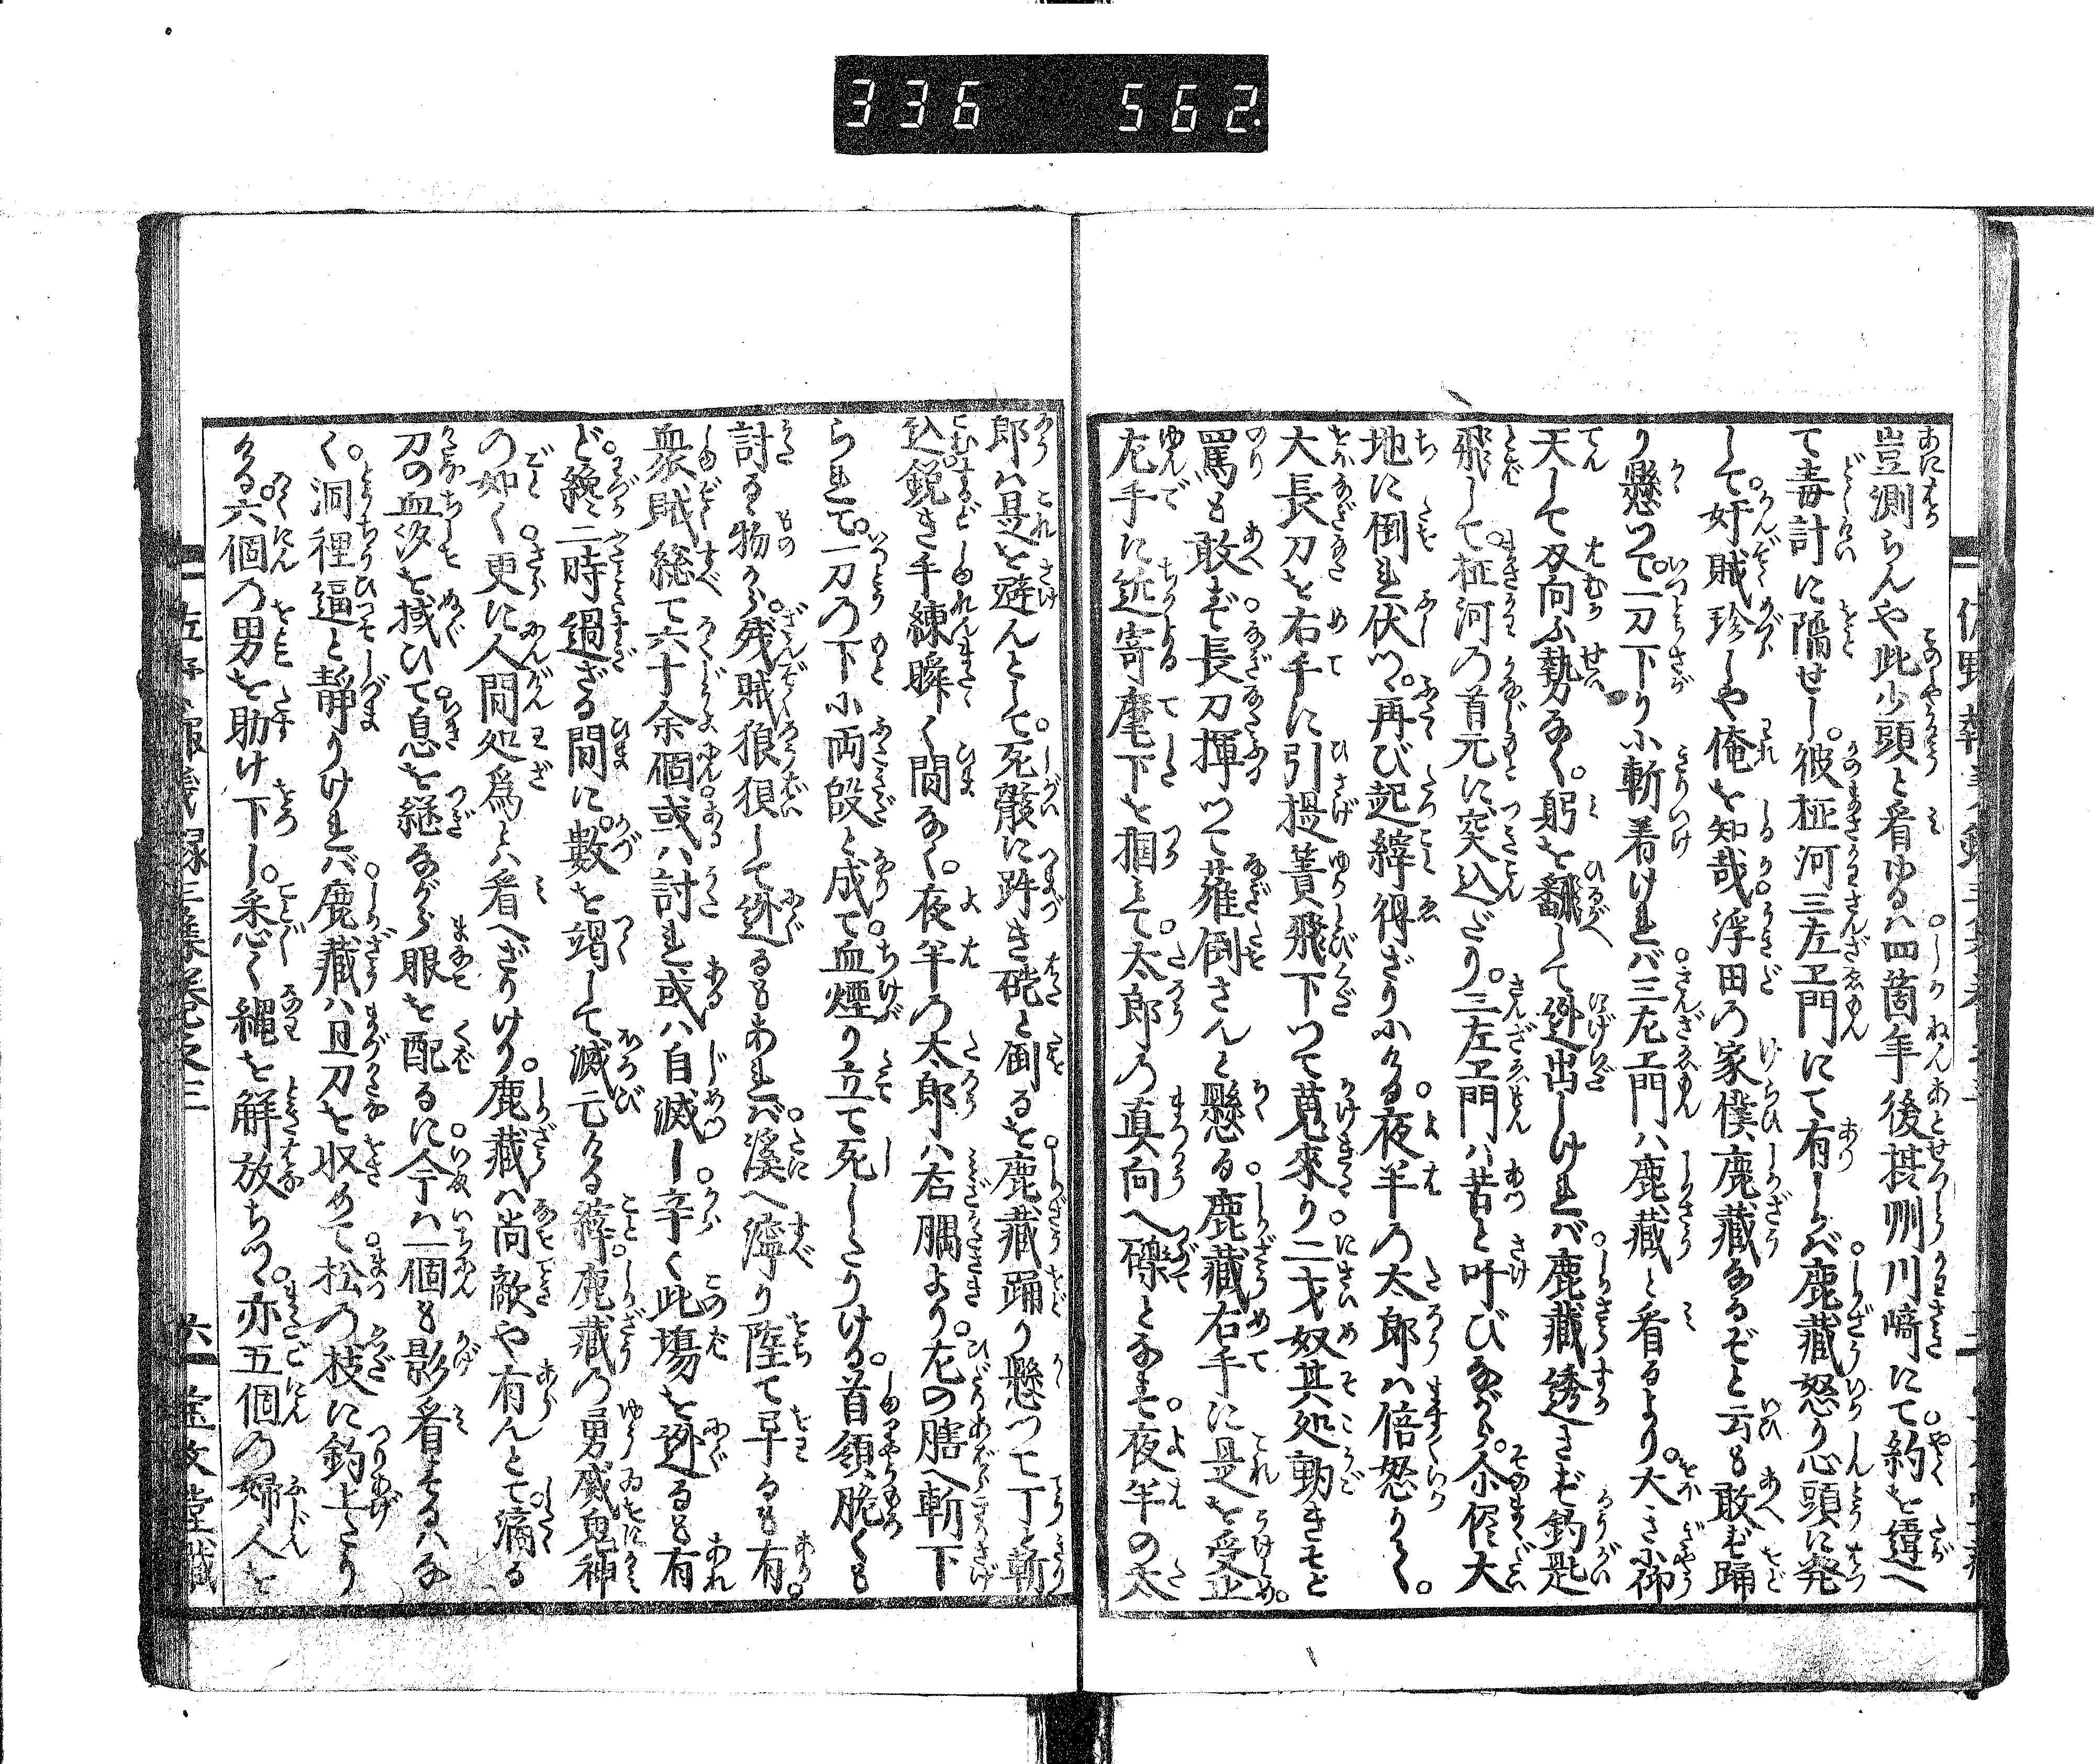 336 562.
豈測らんや此少頭と看ゆるハ四箇年後摂州川﨑にて約を縙へ
て毒計に隔せし。彼柾河三左エ門にて有しかバ鹿藏怒り心頭に発
して。奸賊珍しや俺を知哉浮田の家僕鹿藏なるぞと云も敢ず踊
り懸つて。一刀下りに斬着けれバ三左エ門ハ鹿藏と看るより。大きに仰
天して刃向ふ勢なく。躬を翻して逊出しけれバ鹿藏透さず釣匙
飛して柾河の首元に突込だり。三左エ門ハ苦と叫びながら。尒儘大
地に倒れ伏つ。再び起縡得ざりける夜半の太郎ハ倍怒りて。
大長刀を右手に引提簀飛下つて蒐來り二才奴其処動きそと
罵も敢ず長刀揮つて薙倒さんと懸る鹿藏右手に是を受止。
左手に近寄麾下を掴みて。太郎の真向へ礫となす夜半の太
郎ハ是を避んとして。死骸に跘き磕と倒るを鹿藏踊り懸つて丁と斬
込。鋭き手練瞬く間なく。夜半の太郎ハ右腢より。左の膳へ斬下
られて。一刀の下に両段と成て血煙り立て死しさりける。首領脆くも
討るゝ物から。残賊狼狽して逊るもあれバ。溪へ濘り陸て早るも有。
衆賊総て六十余個或ハ討れ或ハ自滅し辛く此場を逊るも有
ど。纔二時過ぎる間に。數を竭して滅亡ける縡。鹿藏の勇威鬼神
の如く更に人間処爲とハ看へざりけり。鹿藏ハ尚敵や有んとて滴る
刀の血汐を㧞ひて息を継ながら眼を配るに今ハ一個も影看ざるハな
く。洞裡逼と靜りけれバ鹿藏ハ丑刀を収めて松の枝に釣上さり
ける六個の男を助け下し。柔心く縄を觧放ちつ。亦五個の婦人を